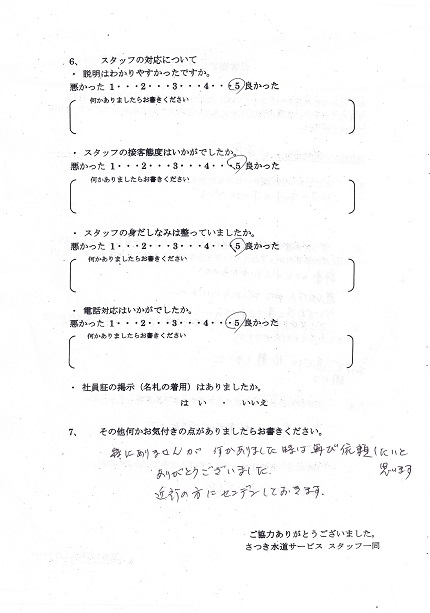 6、　スタッフの対応について
・ 説明はわかりやすかったですか。
悪かった 1・・・2・・・3・・・4・・・5 良かった
何かありましたらお書きください
・ スタッフの接客態度はいかがでしたか。
悪かった 1・・・2・・・3・・・4・・・5 良かった
何かありましたらお書きください
・ スタッフの身だしなみは整っていましたか。
悪かった 1・・・2・・・3・・・4・・・5 良かった
何かありましたらお書きください
・ 電話対応はいかがでしたか。
悪かった 1・・・2・・・3・・・4・・・5 良かった
何かありましたらお書きください
・ 社員証の掲示（名札の着用）はありましたか。
は い ・ いいえ
7、　その他何かお気付きの点がありましたらお書きください。
特にありませんが 何かありました時は再び依頼したいと
思います
ありがとうございました。
近所の方にセンデンしておきます。
ご協力ありがとうございました。
さつき水道サービス スタッフ一同